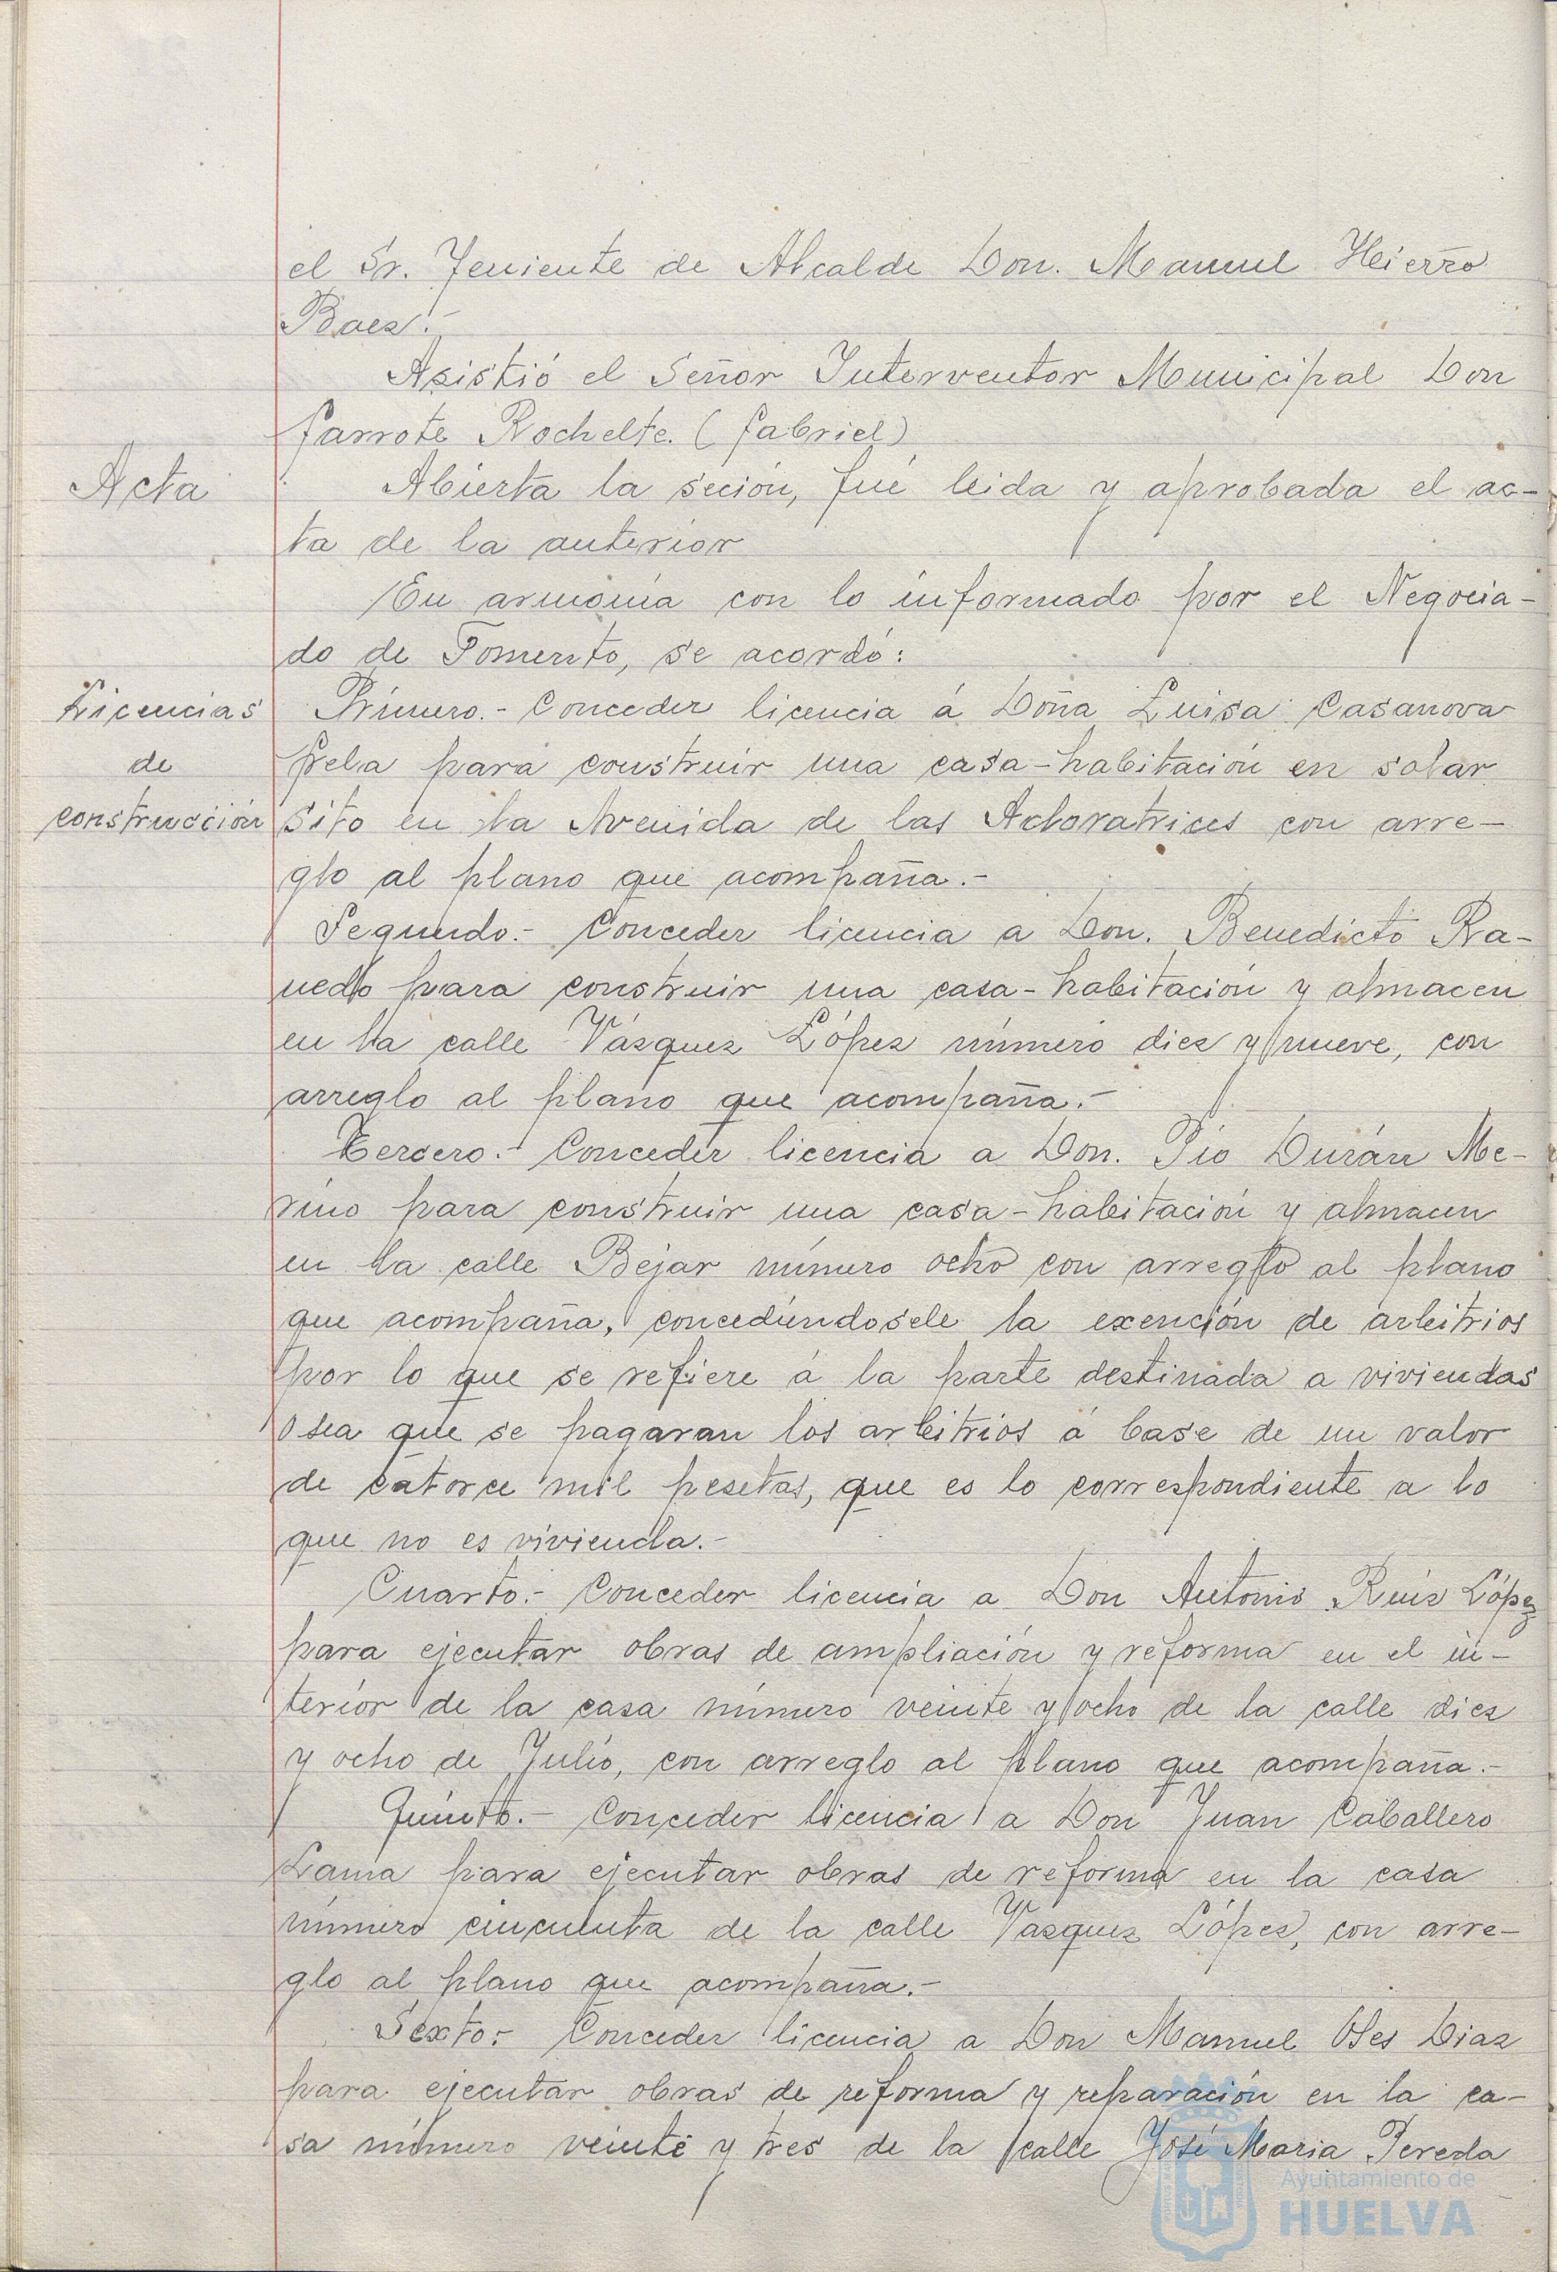 el Sr. Teniente de Alcalde Don. Manuel Hierro
Baez.-
Asistió el Señor Interventor Municipal Don
Garrote Rochelte. (Gabriel)
Acta
Abierta la seción, fué leida y aprobada el ac-
ta de la anterior
En armonía con lo informado por el Negocia-
do de Fomento, se acordó:
Licencias
de
construcción
Primero.- Conceder licencia á Doña Luisa Casanova
Grela para construir una casa-habitación en solar
sito en la Avenida de las Adoratrices con arre-
glo al plano que acompaña.-
Segundo.- Conceder licencia a Don. Benedicto Ra-
nedo para construir una casa-habitación y almacen
en la calle Vázquez López número diez y nueve, con
arreglo al plano que acompaña.-
Tercero.- Conceder licencia a Don. Pio Durán Me-
rino para construir una casa-habitación y almacen
en la calle Bejar número ocho con arreglo al plano
que acompaña, concediendosele la exención de arbitrios
por lo que se refiere á la parte destinada a viviendas
osea que se pagaran los arbitrios á base de un valor
de catorce mil pesetas, que es lo correspondiente a lo
que no es vivienda.-
Cuarto.- Conceder licencia a Don Antonio Ruiz López
para ejecutar obras de ampliación y reforma en el in-
terior de la casa número veinte y ocho de la calle diez
y ocho de Julio, con arreglo al plano que acompaña.-
Quinto.- Conceder licencia a Don Juan Caballero
Lama para ejecutar obras de reforma en la casa
número cincuenta de la calle Vázquez López, con arre-
glo al plano que acompaña.-
Sexto.- Conceder licencia a Don Manuel Oses Diaz
para ejecutar obras de reforma y reparación en la ca-
sa número veinte y tres de la calle José Maria Pereda
Ayuntamiento de
HUELVA